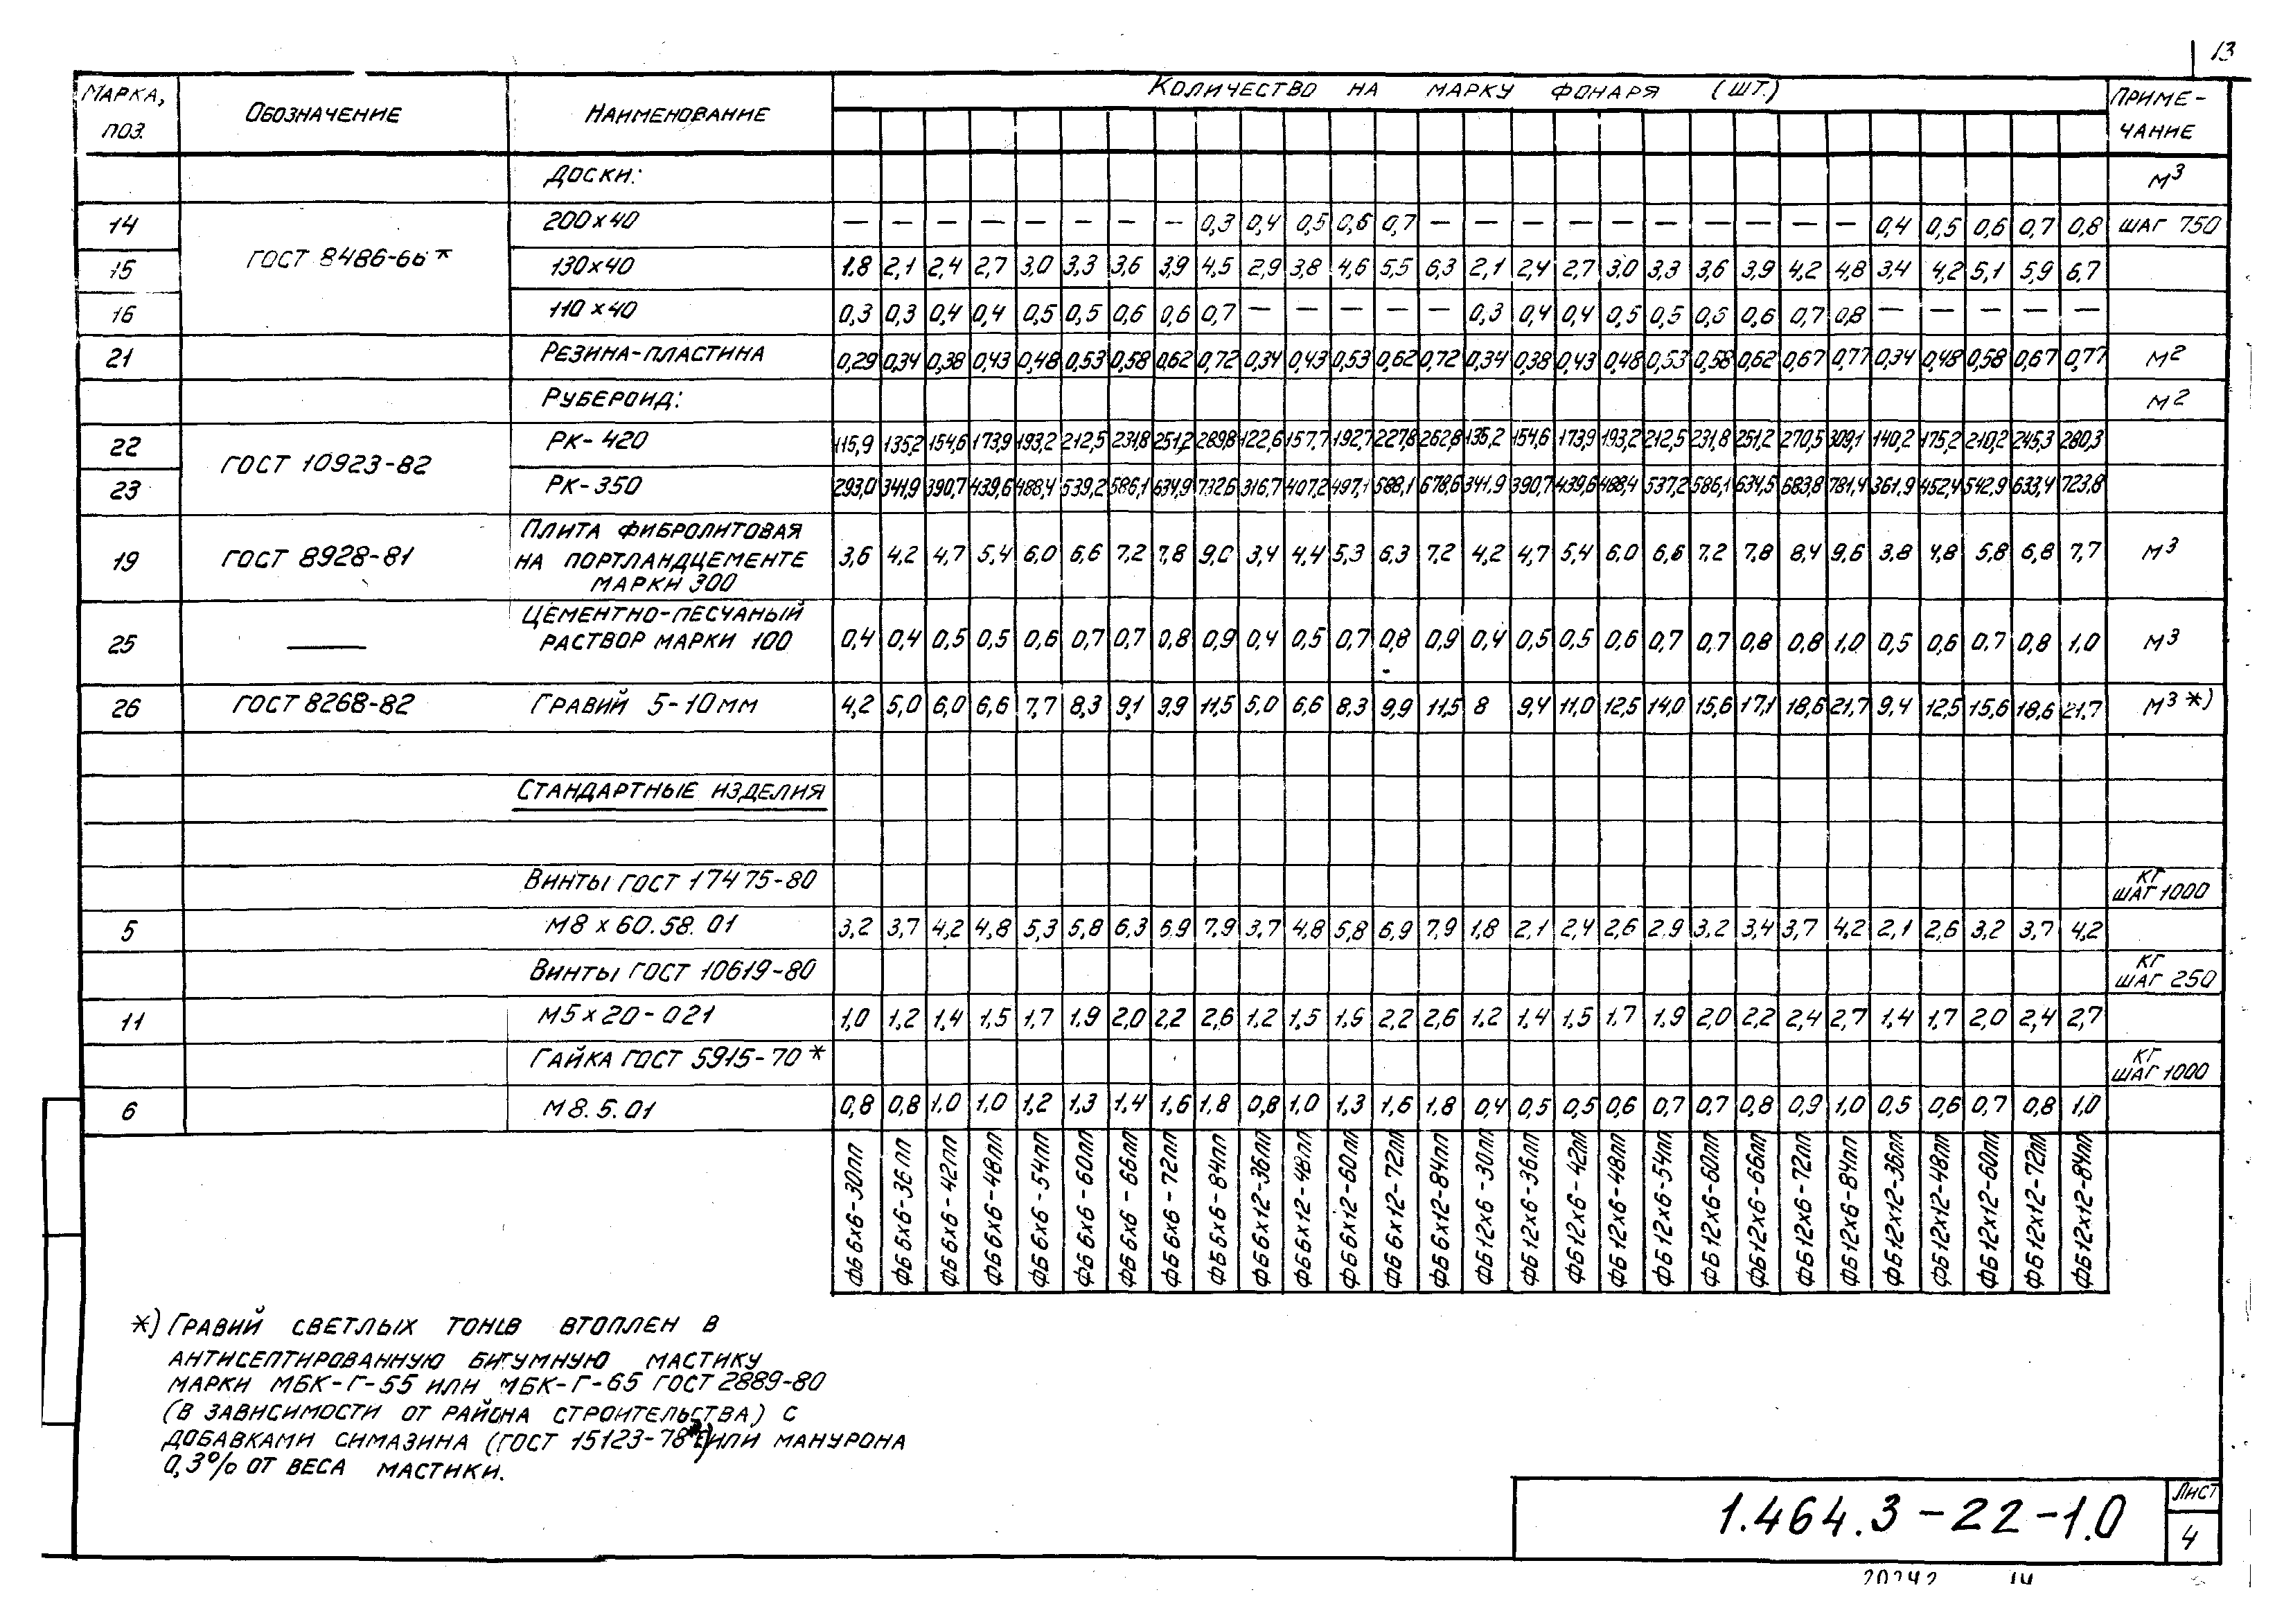 13
Марка, поз. Обозначение Наименование Количество на марку фонаря (шт.) Примечание
Доски: м3
14 200х40 — — — — — — — — 0,3 0,4 0,5 0,6 0,7 — — — — — — — — — — 0,4 0,5 0,6 0,7 0,8 шаг 750
ГОСТ 8486-66*
15 130х40 1.8 2,1 2,4 2,7 3,0 3,3 3,6 3,9 4,5 2,9 3,8 4,6 5,5 6,3 2,1 2,4 2,7 3,0 3,3 3,6 3,9 4,2 4,8 3,4 4,2 5,1 5,9 6,7
16 110х40 0,3 0,3 0,4 0,4 0,5 0,5 0,6 0,6 0,7 — — — — — 0,3 0,4 0,4 0,5 0,5 0,6 0,6 0,7 0,8 — — — — —
21 Резина-пластина 0,29 0,34 0,38 0,43 0,48 0,53 0,58 0,62 0,72 0,34 0,43 0,53 0,62 0,72 0,34 0,38 0,43 0,48 0,53 0,58 0,62 0,67 0,77 0,34 0,48 0,58 0,67 0,77 м2
Рубероид: м2
22 РК-420 115,9 135,2 154,6 173,9 193,2 212,5 231,8 251,2 289,8 122,6 157,7 192,7 227,8 262,8 135,2 154,6 173,9 193,2 212,5 231,8 251,2 270,5 309,1 140,2 175,2 210,2 245,3 280,3
ГОСТ 10923-82
23 РК-350 293,0 341,9 390,7 439,6 488,4 539,2 586,1 634,9 732,6 316,7 407,2 497,1 588,1 678,6 341,9 390,7 439,6 488,4 537,2 586,1 634,5 683,8 781,4 361,9 452,4 542,9 633,4 723,8
19 ГОСТ 8928-81 Плита фибролитовая на портландцементе марки 300 3,6 4,2 4,7 5,4 6,0 6,6 7,2 7,8 9,0 3,4 4,4 5,3 6,3 7,2 4,2 4,7 5,4 6,0 6,6 7,2 7,8 8,4 9,6 3,8 4,8 5,8 6,8 7,7 м3
25 — Цементно-песчаный раствор марки 100 0,4 0,4 0,5 0,5 0,6 0,7 0,7 0,8 0,9 0,4 0,5 0,7 0,8 0,9 0,4 0,5 0,5 0,6 0,7 0,7 0,8 0,8 1,0 0,5 0,6 0,7 0,8 1,0 м3
26 ГОСТ 8268-82 Гравий 5-10мм 4,2 5,0 6,0 6,6 7,7 8,3 9,1 9,9 11,5 5,0 6,6 8,3 9,9 11,5 8 9,4 11,0 12,5 14,0 15,6 17,1 18,6 21,7 9,4 12,5 15,6 18,6 21,7 м3*)
Стандартные изделия
Винты ГОСТ 17475-80 кг шаг 1000
5 М8х60.58.01 3,2 3,7 4,2 4,8 5,3 5,8 6,3 6,9 7,9 3,7 4,8 5,8 6,9 7,9 1,8 2,1 2,4 2,6 2,9 3,2 3,4 3,7 4,2 2,1 2,6 3,2 3,7 4,2
Винты ГОСТ 10619-80 кг шаг 250
11 М5х20-021 1,0 1,2 1,4 1,5 1,7 1,9 2,0 2,2 2,6 1,2 1,5 1,6 2,2 2,6 1,2 1,4 1,5 1,7 1,9 2,0 2,2 2,4 2,7 1,4 1,7 2,0 2,4 2,7
Гайка ГОСТ 5915-70* кг шаг 1000
6 М8.5.01 0,8 0,8 1,0 1,0 1,2 1,3 1,4 1,6 1,8 0,8 1,0 1,3 1,6 1,8 0,4 0,5 0,5 0,6 0,7 0,7 0,8 0,9 1,0 0,5 0,6 0,7 0,8 1,0
ФБ6х6-30ПП
ФБ6х6-36ПП
ФБ6х6-42ПП
ФБ6х6-48ПП
ФБ6х6-54ПП
ФБ6х6-60ПП
ФБ6х6-66ПП
ФБ6х6-72ПП
ФБ6х6-84ПП
ФБ6х12-36ПП
ФБ6х12-48ПП
ФБ6х12-60ПП
ФБ6х12-72ПП
ФБ6х12-84ПП
ФБ12х6-30ПП
ФБ12х6-36ПП
ФБ12х6-42ПП
ФБ12х6-48ПП
ФБ12х6-54ПП
ФБ12х6-60ПП
ФБ12х6-66ПП
ФБ12х6-72ПП
ФБ12х6-84ПП
ФБ12х12-36ПП
ФБ12х12-48ПП
ФБ12х12-60ПП
ФБ12х12-72ПП
ФБ12х12-84ПП
*) Гравий светлых тонов втоплен в
антисептированную битумную мастику
марки МБК-Г-55 или МБК-Г-65 ГОСТ 2889-80
(в зависимости от района строительства) с
добавками симазина (ГОСТ 15123-78 или манурона
0,3% от веса мастики.
1.464.3-22-1.0
Лист
4
20242 14